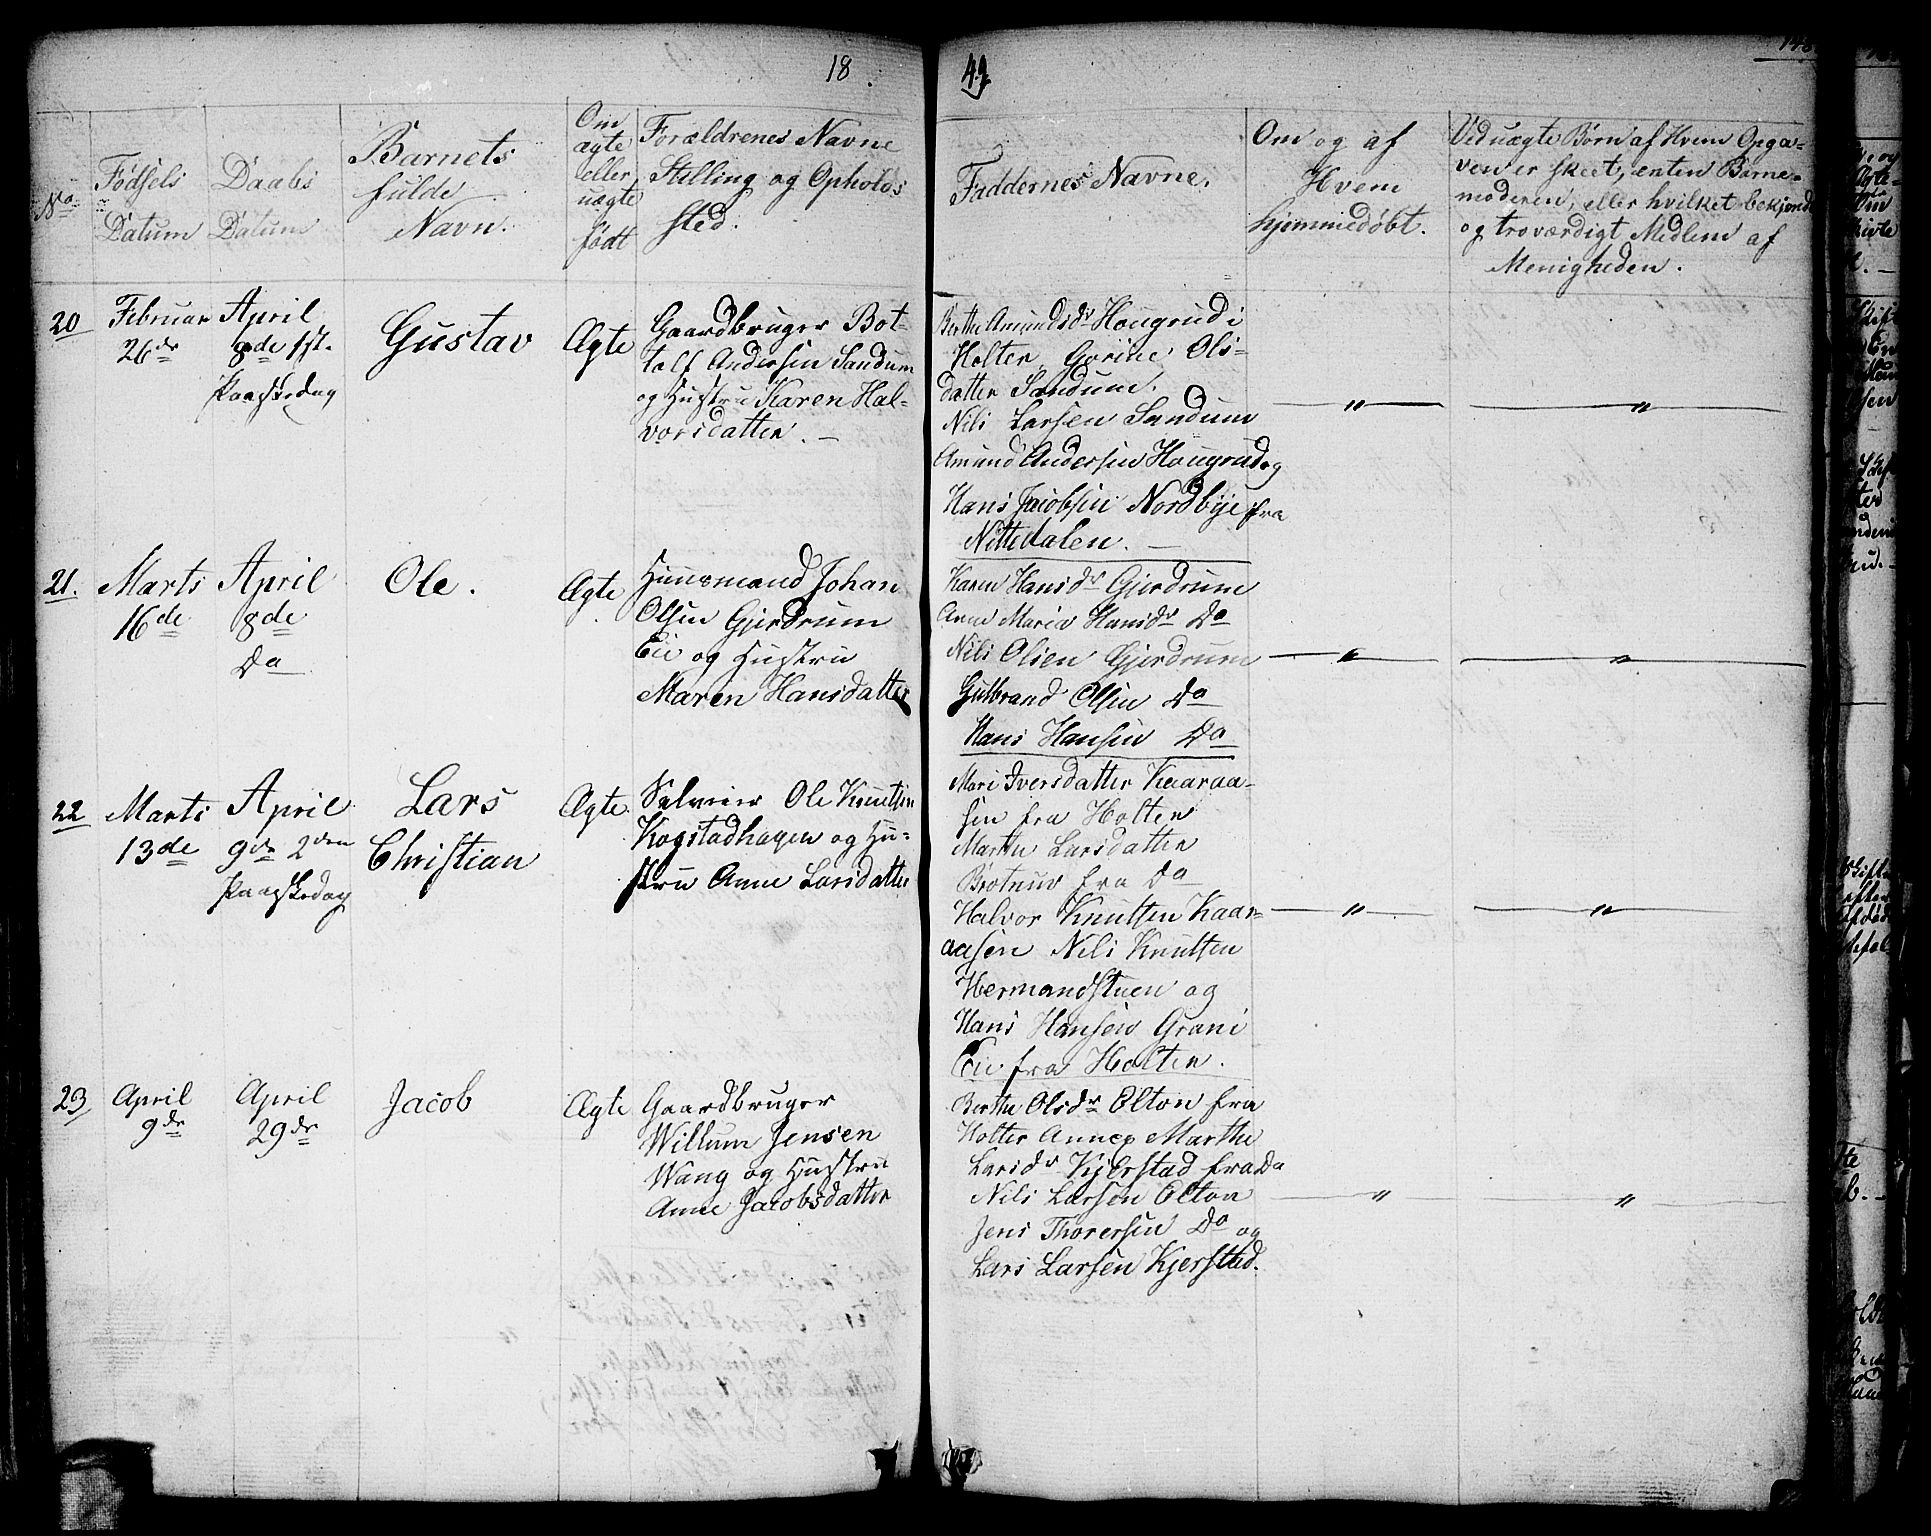 18 49
No
Fødsels
Datum
Daabs
Datum
Barnets
fulde
Navn.
Om
ægte
eller
uægte
født
Forældrenes Navne
Stilling og Opholds
sted.
Faddernes Navne.
Om og af
Hvem
hjemmedøbt.
Ved uægte Børn af Hvem Opga-
ven er skeet, enten Barne-
moderen, eller hvilket bekjendt
og troværdigt Medlem af
Menigheden.
20
Februar
26de
April
8de 1ste
Paaskedag
Gustav
Ægte
Gaardbruger Bot-
tolf Andersen Sandum
og Hustru Karen Hal-
vorsdatter. —
Berthe Amundsdr Hougrud i
Holter Gorine Ols-
datter Sandum.
Nils Larsen Sandum
Amund Andersen Hougrud og
Hans Jacobsen Nordbye fra
Nittedalen. —
— " —
— " —
21.
Marts
16de
April
8de
Do
Ole.
Ægte
Huusmand Johan
Olsen Gjerdrum
Eie og Hustru
Maren Hansdatter
Karen Hansdr Gjerdrum
Anne Maria Hansdr Do
Nils Olsen Gjerdrum
Gulbrand Olsen Do
Hans Hansen Do
— " —
— " —
22
Marts
13de
April
9de 2den
Paaskedag
Lars
Christian
Ægte
Selveier Ole Knutsen
Kogstadhagen og Hu-
stru Anne Larsdatter
Mari Iversdatter Kaaraa-
sen fra Holter
Marthe Larsdatter
fra Do
Halvor Knutsen Kaar-
aasen Nils Knutsen
Hermandstuen og
Hans Hansen Grani
Eie fra Holter.
— " —
— " —
23
April
9de
April
29de
Jacob
Ægte
Gaardbruger
Willum Jensen
Wang og Hustru
Anne Jacobsdatter
Berthe Olsdr Elton fra
Holter Annex Marthe
Larsdr Kjerstad fra Do
Nils Larsen Elton
Jens Thorersen Do og
Lars Larsen Kjerstad.
— " —
— " —